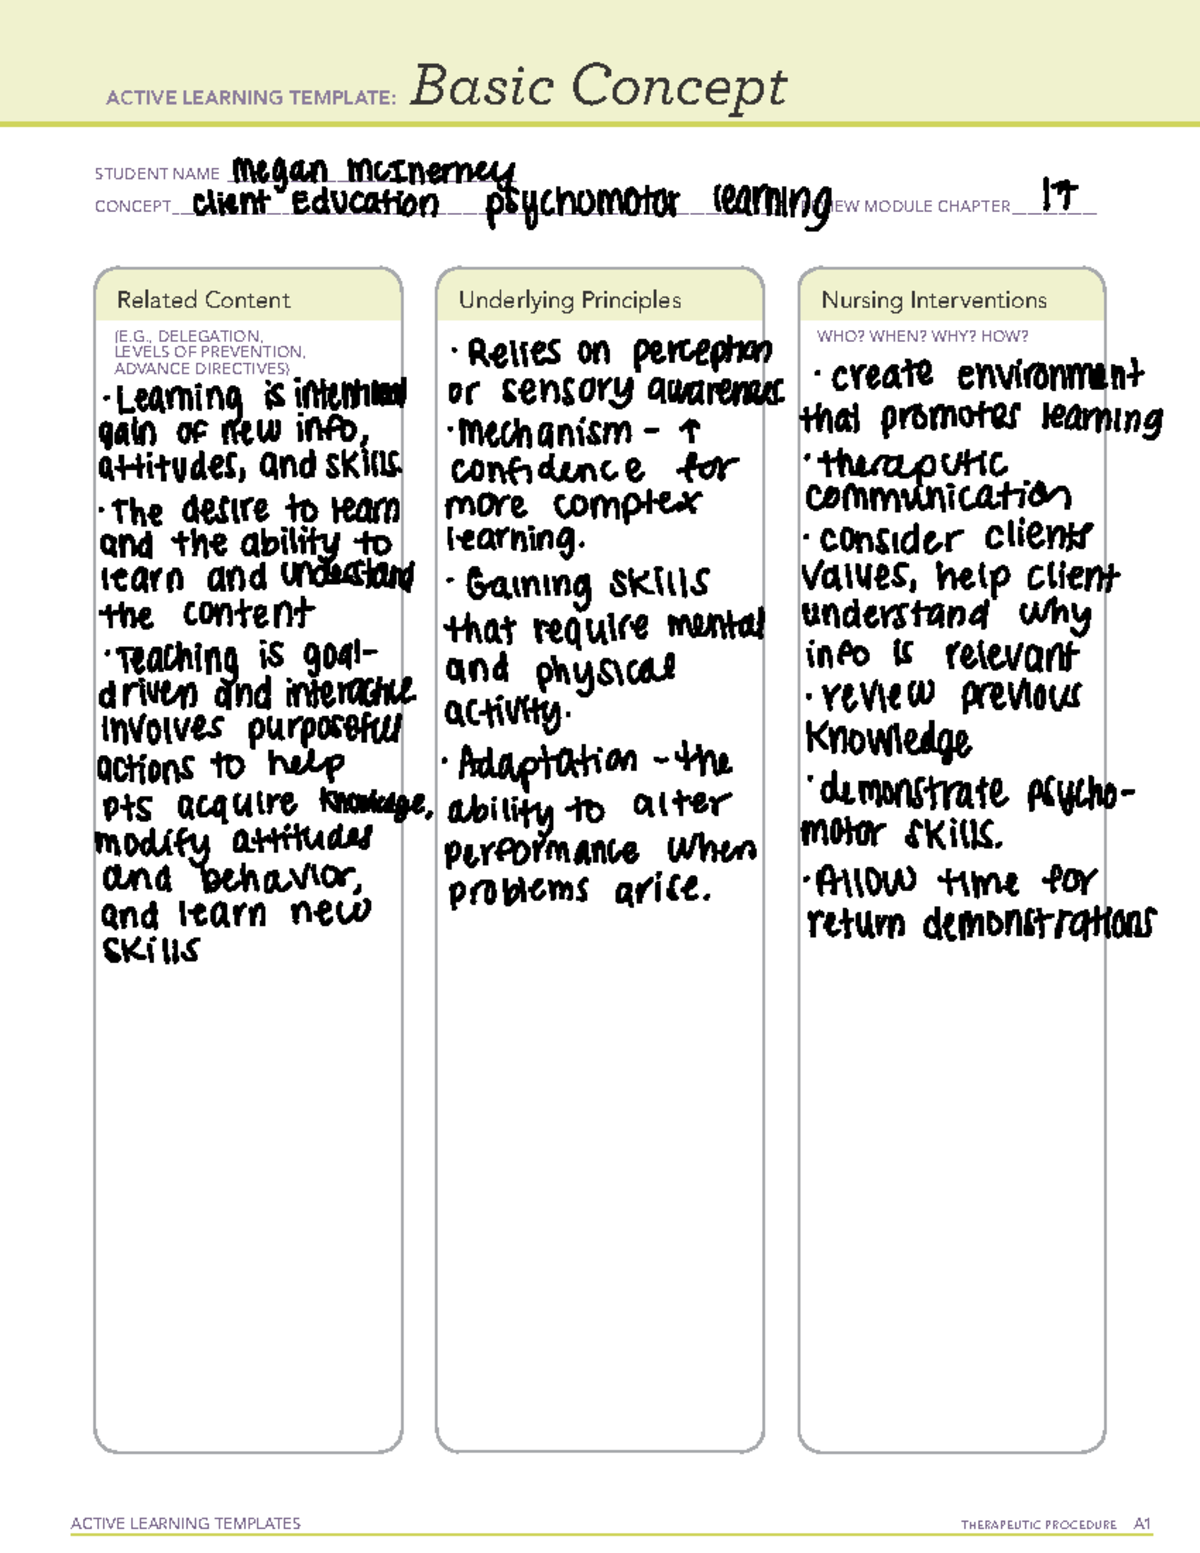 ACTIVE LEARNING TEMPLATE: Basic Concept
STUDENT NAME Megan McInerney
CONCEPT client Education psychomotor learning REVIEW MODULE CHAPTER 17
Related Content
(E.G., DELEGATION,
LEVELS OF PREVENTION,
ADVANCE DIRECTIVES)
· Learning is intentional
gain of new info,
attitudes, and skills.
· The desire to learn
and the ability to
learn and understand
the content
· Teaching is goal-
driven and interactive
involves purposeful
actions to help
pts acquire knowledge,
modify attitudes
and behavior,
and learn new
skills
Underlying Principles
· Relies on perception
or sensory awareness.
· Mechanism - ↑
confidence for
more complex
learning.
· Gaining skills
that require mental
and physical
activity.
· Adaptation - the
ability to alter
performance when
problems arise.
Nursing Interventions
WHO? WHEN? WHY? HOW?
· create environment
that promotes learning
· theraputic
communication
· consider clients
values, help client
understand why
info is relevant
· review previous
knowledge
· demonstrate psycho-
motor skills.
· Allow time for
return demonstrations
ACTIVE LEARNING TEMPLATES
THERAPEUTIC PROCEDURE A1